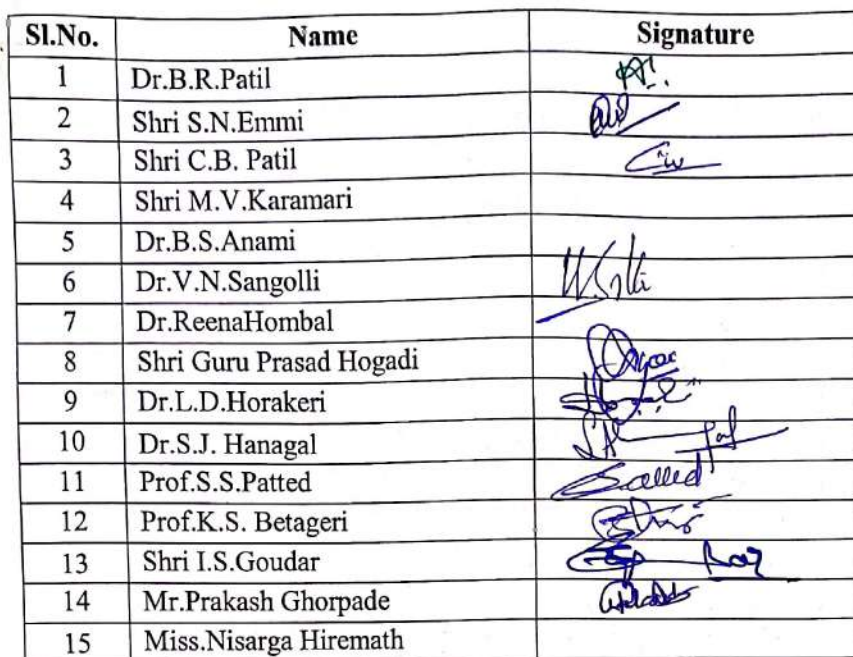 Sl.No. Name Signature
1 Dr.B.R.Patil
2 Shri S.N.Emmi
3 Shri C.B. Patil
4 Shri M.V.Karamari
5 Dr.B.S.Anami
6 Dr.V.N.Sangolli
7 Dr.ReenaHombal
8 Shri Guru Prasad Hogadi
9 Dr.L.D.Horakeri
10 Dr.S.J. Hanagal
11 Prof.S.S.Patted
12 Prof.K.S. Betageri
13 Shri I.S.Goudar
14 Mr.Prakash Ghorpade
15 Miss.Nisarga Hiremath